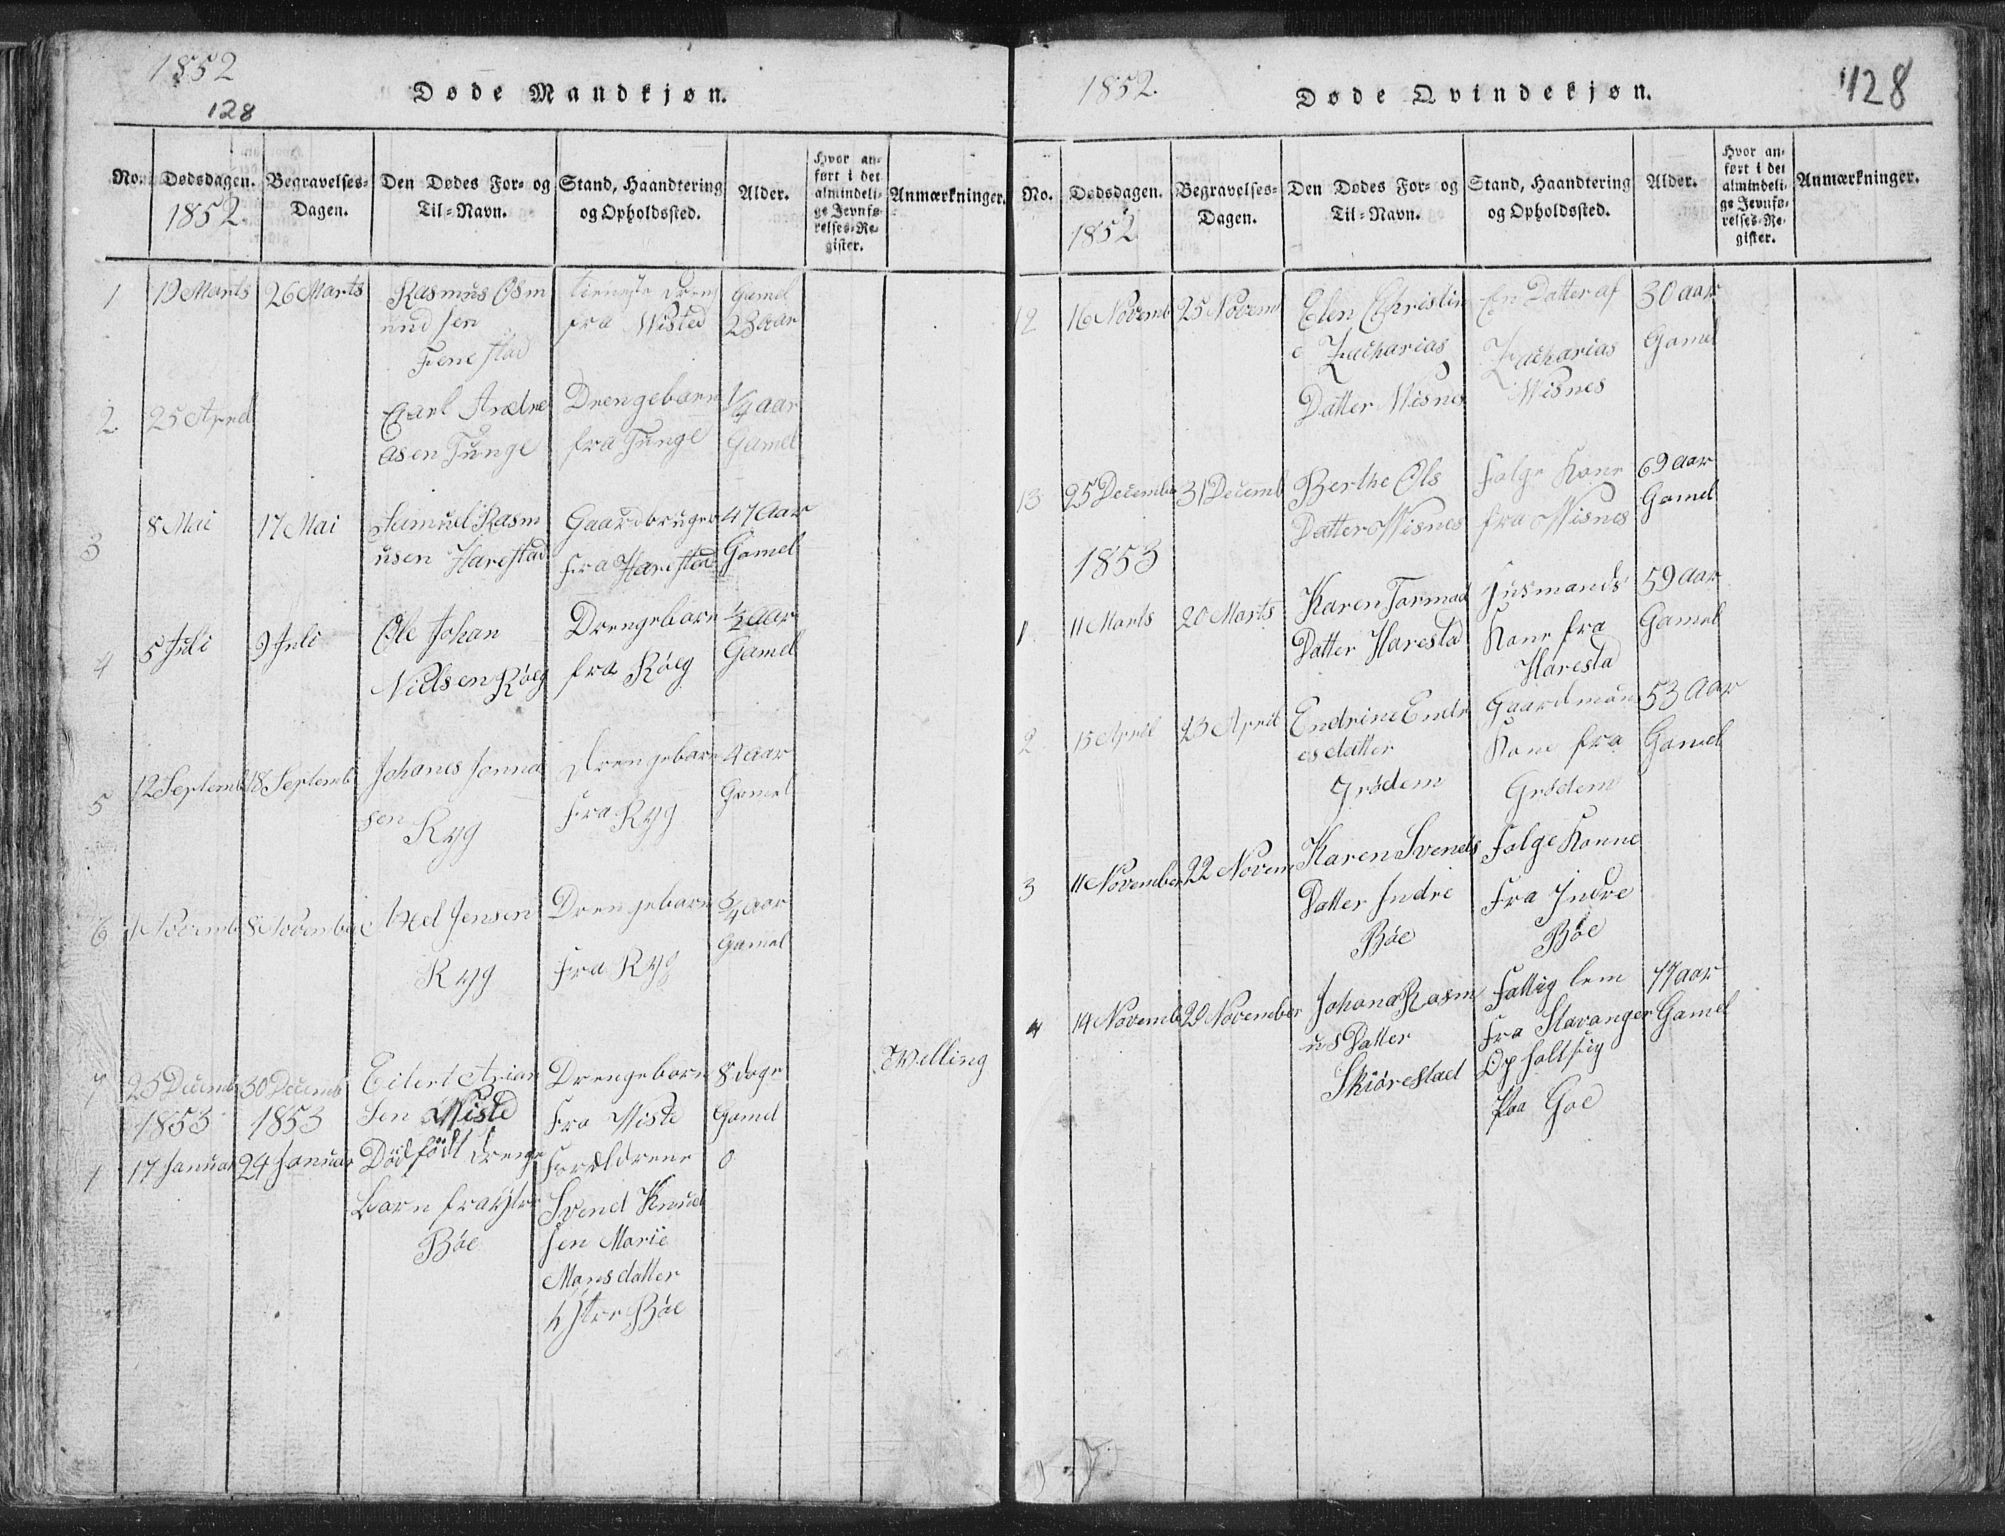 1852
128
Døde Mandkjøn.
No. Dødsdagen. Begravelses-Dagen. Den Dødes For- og Til-Navn. Stand, Haandtering og Opholdssted. Alder. Hvor anført i det almindelige Jevnførelses-Register. Anmærkninger.
1852.
1 19 Marts 26 Marts Rasmus Osm tieneste Dreng Gamel
und sen fra Wisted 23 Aar
Fenestad
2. 25 April Carl Andre Drengebarn 1/4 aar
asen Tunge fra Tunge Gamel
3 8 Mai 17 Mai Samuel Rasm Gaardbruger 47 Aar
usen Harestad fra Harestad Gamel
4 5 Juli 9 Juli Ole Johan Drengebarn 1/2 Aar
Nielsen Röeg fra Röeg Gamel
5 12 Septemb 18 Septemb Johanes Jonna Drengebarn 4 aar
sen Ryg Fra Ryg Gamel
6 1 Novemb 8 November Axel Jensen Drengebarn 3/4 aar
Ryg Fra Ryg Gamel
7 25 Decemb 30 Decemb Eilert Arian Drengebarn 8 dage Welling
sen Wiste Fra Wiste Gamel
1853 1853
1 17 Januar 24 Januar Dödfödt Drenge Foreldrene 0
barn fra Ytre Svend Knud
Böe sen Marie
Mansdatter
Ytre Böe
1852.
Døde Qvindekjøn.
128
No. Dødsdagen. Begravelses-Dagen. Den Dødes For- og Til-Navn. Stand, Haandtering og Opholdssted. Alder. Hvor anført i det almindelige Jevnførelses-Register. Anmærkninger.
1852
12 16 Novemb 25 Novemb Elen Christin En Datter af 30 aar
e Zacharias Zacharias Gamel
Datter Wisnes Wisnes
13 25 December 31 Decemb Berthe Ols Folge Kone 69 aar
Datter Wisnes fra Wisnes Gamel
1853
1. 11 Marts 20 Marts Karen Tormod Husmands 59 aar
Datter Haresta Kone fra Gamel
Haresta
2 15 April 23 April Endrine Endr Gaardman 53 Aar
esdatter Kone fra Gamel
Grödem Grödem
3 11 November 22 Novem Karen Svends Folge Konne
Datter Indre Fra Indre
Böe Böe
4 14 Novemb 29 November Johana Rasm Fattig lem 77 aar
us Datter Fra Stavanger Gamel
Skiörestad Op holt sig
Paa Goe